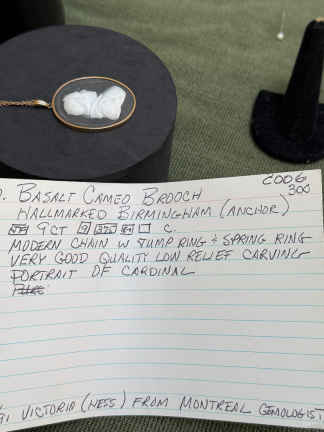 C006
300
. BASALT CAMEO BROOCH
HALLMARKED BIRMINGHAM (ANCHOR)
9CT 9 375 C.
MODERN CHAIN W JUMP RING & SPRING RING
VERY GOOD QUALITY LOW RELIEF CARVING
PORTRAIT OF CARDINAL
VICTORIA (NESS) FROM MONTREAL GEMOLOGIST